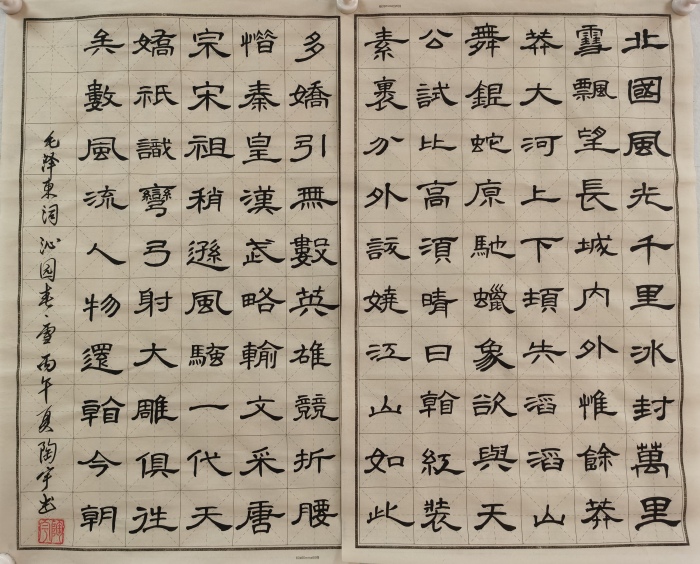 北國風光千里冰封萬里
雪飄望長城內外惟餘莽
莽大河上下頓失滔滔山
舞銀蛇原馳蠟象欲與天
公試比高須晴日看紅裝
素裹分外該嬈江山如此
多嬌引無數英雄競折腰
惜秦皇漢武略輸文采唐
宗宋祖稍遜風騷一代天
嬌祇識彎弓射大雕俱往
矣數風流人物還看今朝
毛泽東词沁园春·雪丙午夏陶宇书